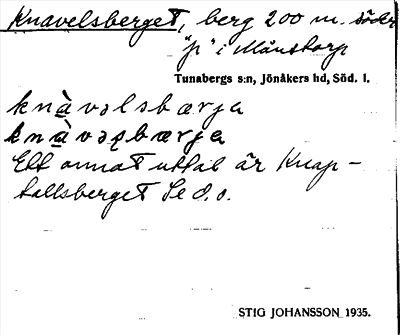 Knavelsberget, berg 200 m. söder
"p" i Månstorp
Tunabergs s:n, Jönåkers hd, Söd. l.
knàvəlsbærja
knàvəşbærja
Ett annat uttal är Knap-
tallsberget Se d.o.
STIG JOHANSSON 1935.